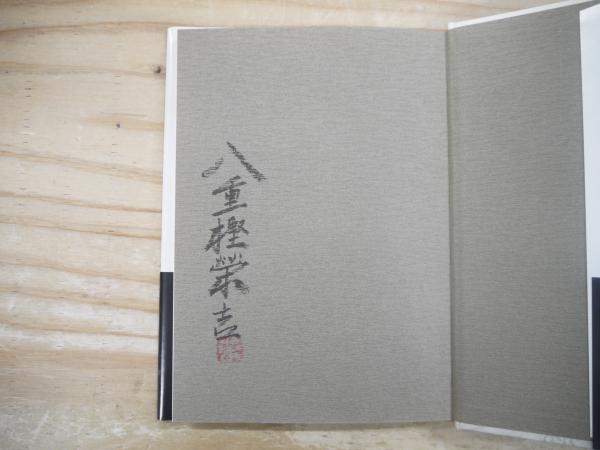 八重樫榮吉